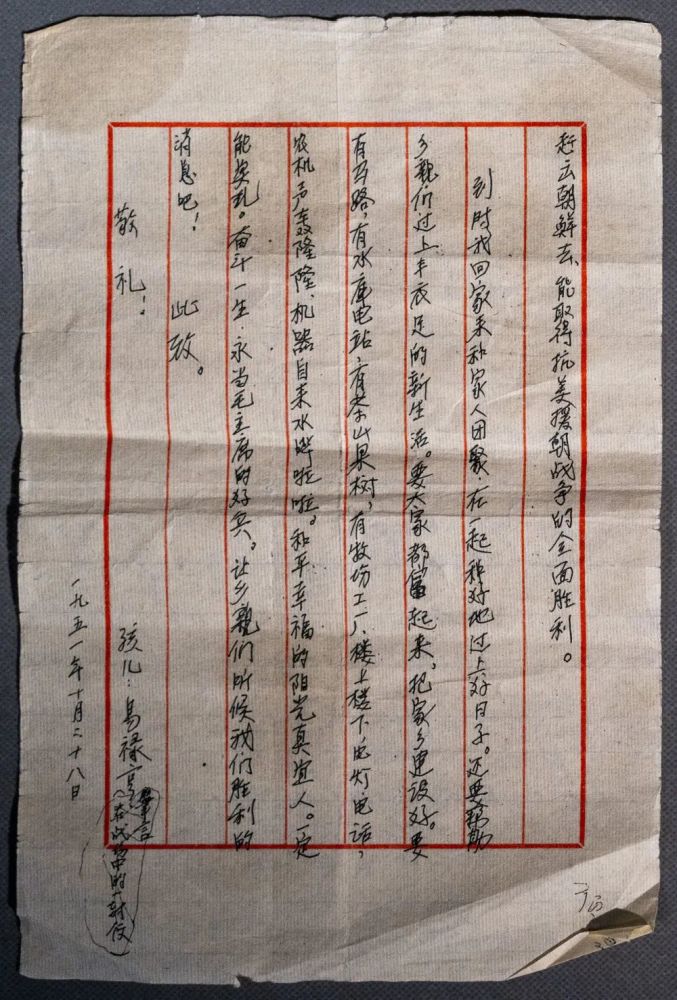 赶出朝鲜去、能取得抗美援朝战争的全面胜利。
到时我回家来和家人团聚、在一起种好地过上好日子。还要帮助
乡亲们过上丰衣足的新生活。要大家都富起来，把家乡建设好。要
有马路，有水库电站，有茶山果树，有牧场工厂、楼上楼下电灯电话，
农机声轰隆隆、机器自来水哗啦啦。和平幸福的阳光真宜人。一定
能实现。奋斗一生、永当毛主席的好兵。让乡亲们听候我们胜利的
消息吧！ 此致。
敬礼！
孩儿：易禄亨
（在战场中的一封信）
一九五一年十月二十八日